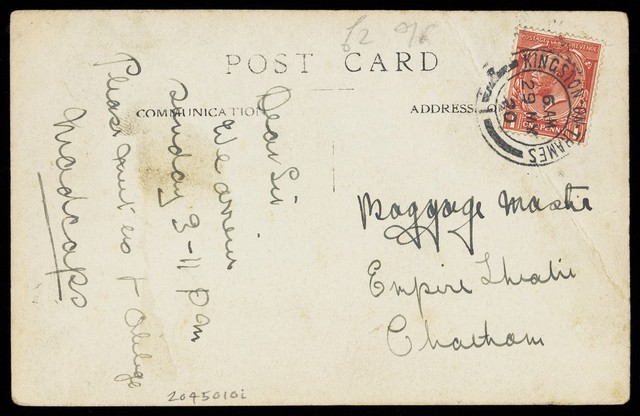 £2
POST CARD
COMMUNICATION
ADDRESS
POSTAGE REVENUE
ONE PENNY
KINGSTON-ON-THAMES
6 AM
29 MR
20
Dear Sir
We arrive
Sunday 3-11 P M
Please meet us & oblige
Madcaps
Baggage Master
Empire Theatre
Chatham
2045010i